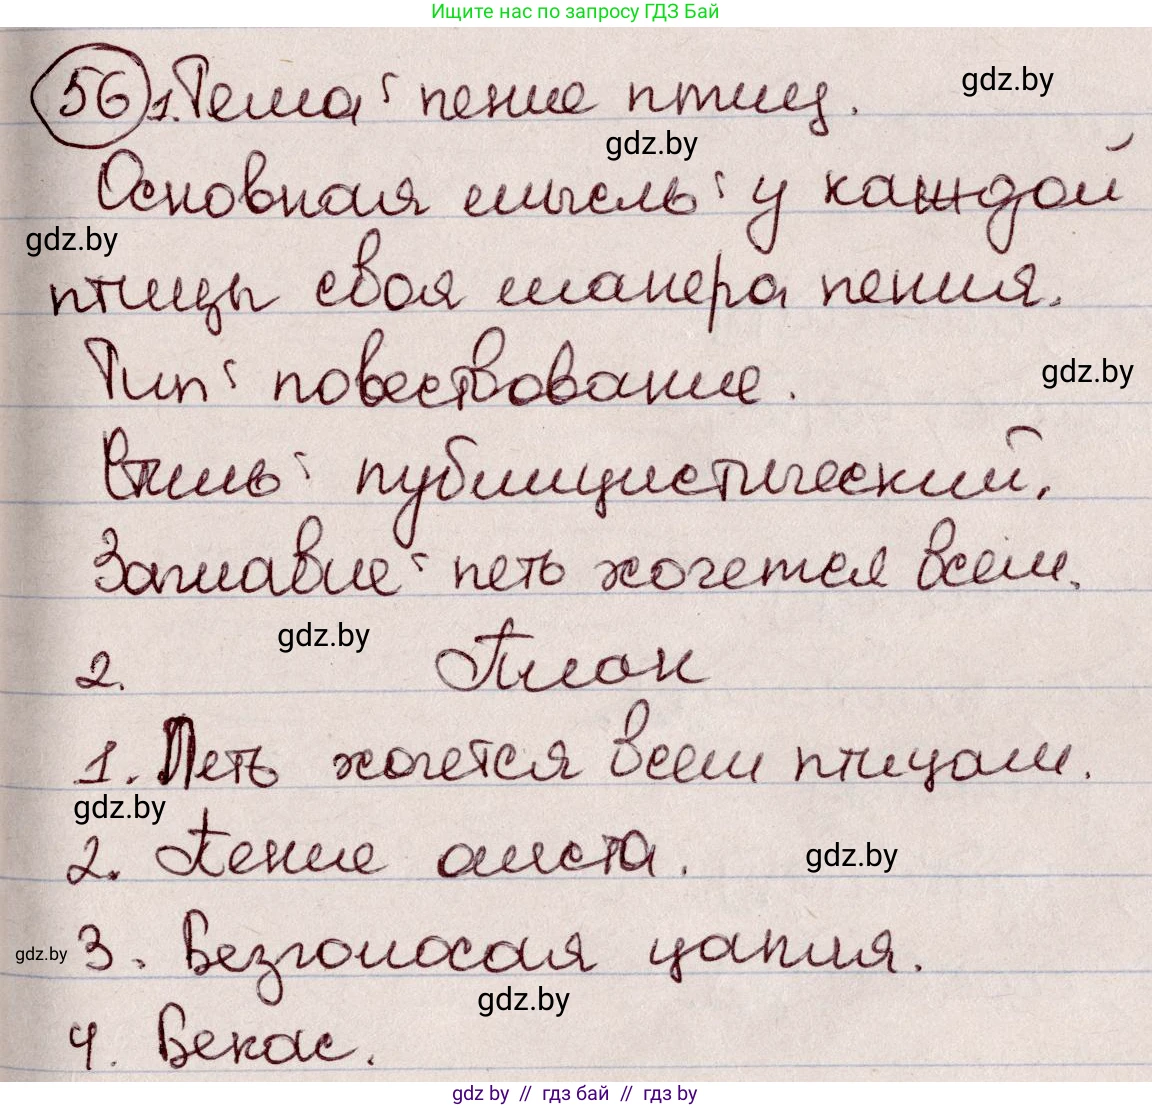 Ищите нас по запросу ГДЗ Бай
56 1. Тема: пение птиц.
gdz.by
gdz.by
Основная мысль: у каждой
gdz.by
птицы своя манера пения.
Тип: повествование.
gdz.by
Стиль: публицистический.
Заглавие: петь хочется всем.
gdz.by
2. План
1. Петь хочется всем птицам.
gdz.by
2. Пение аиста.
gdz.by
gdz.by
3. Безголосая цапля.
gdz.by
4. Бекас.
gdz.by // гдз бай // гдз by